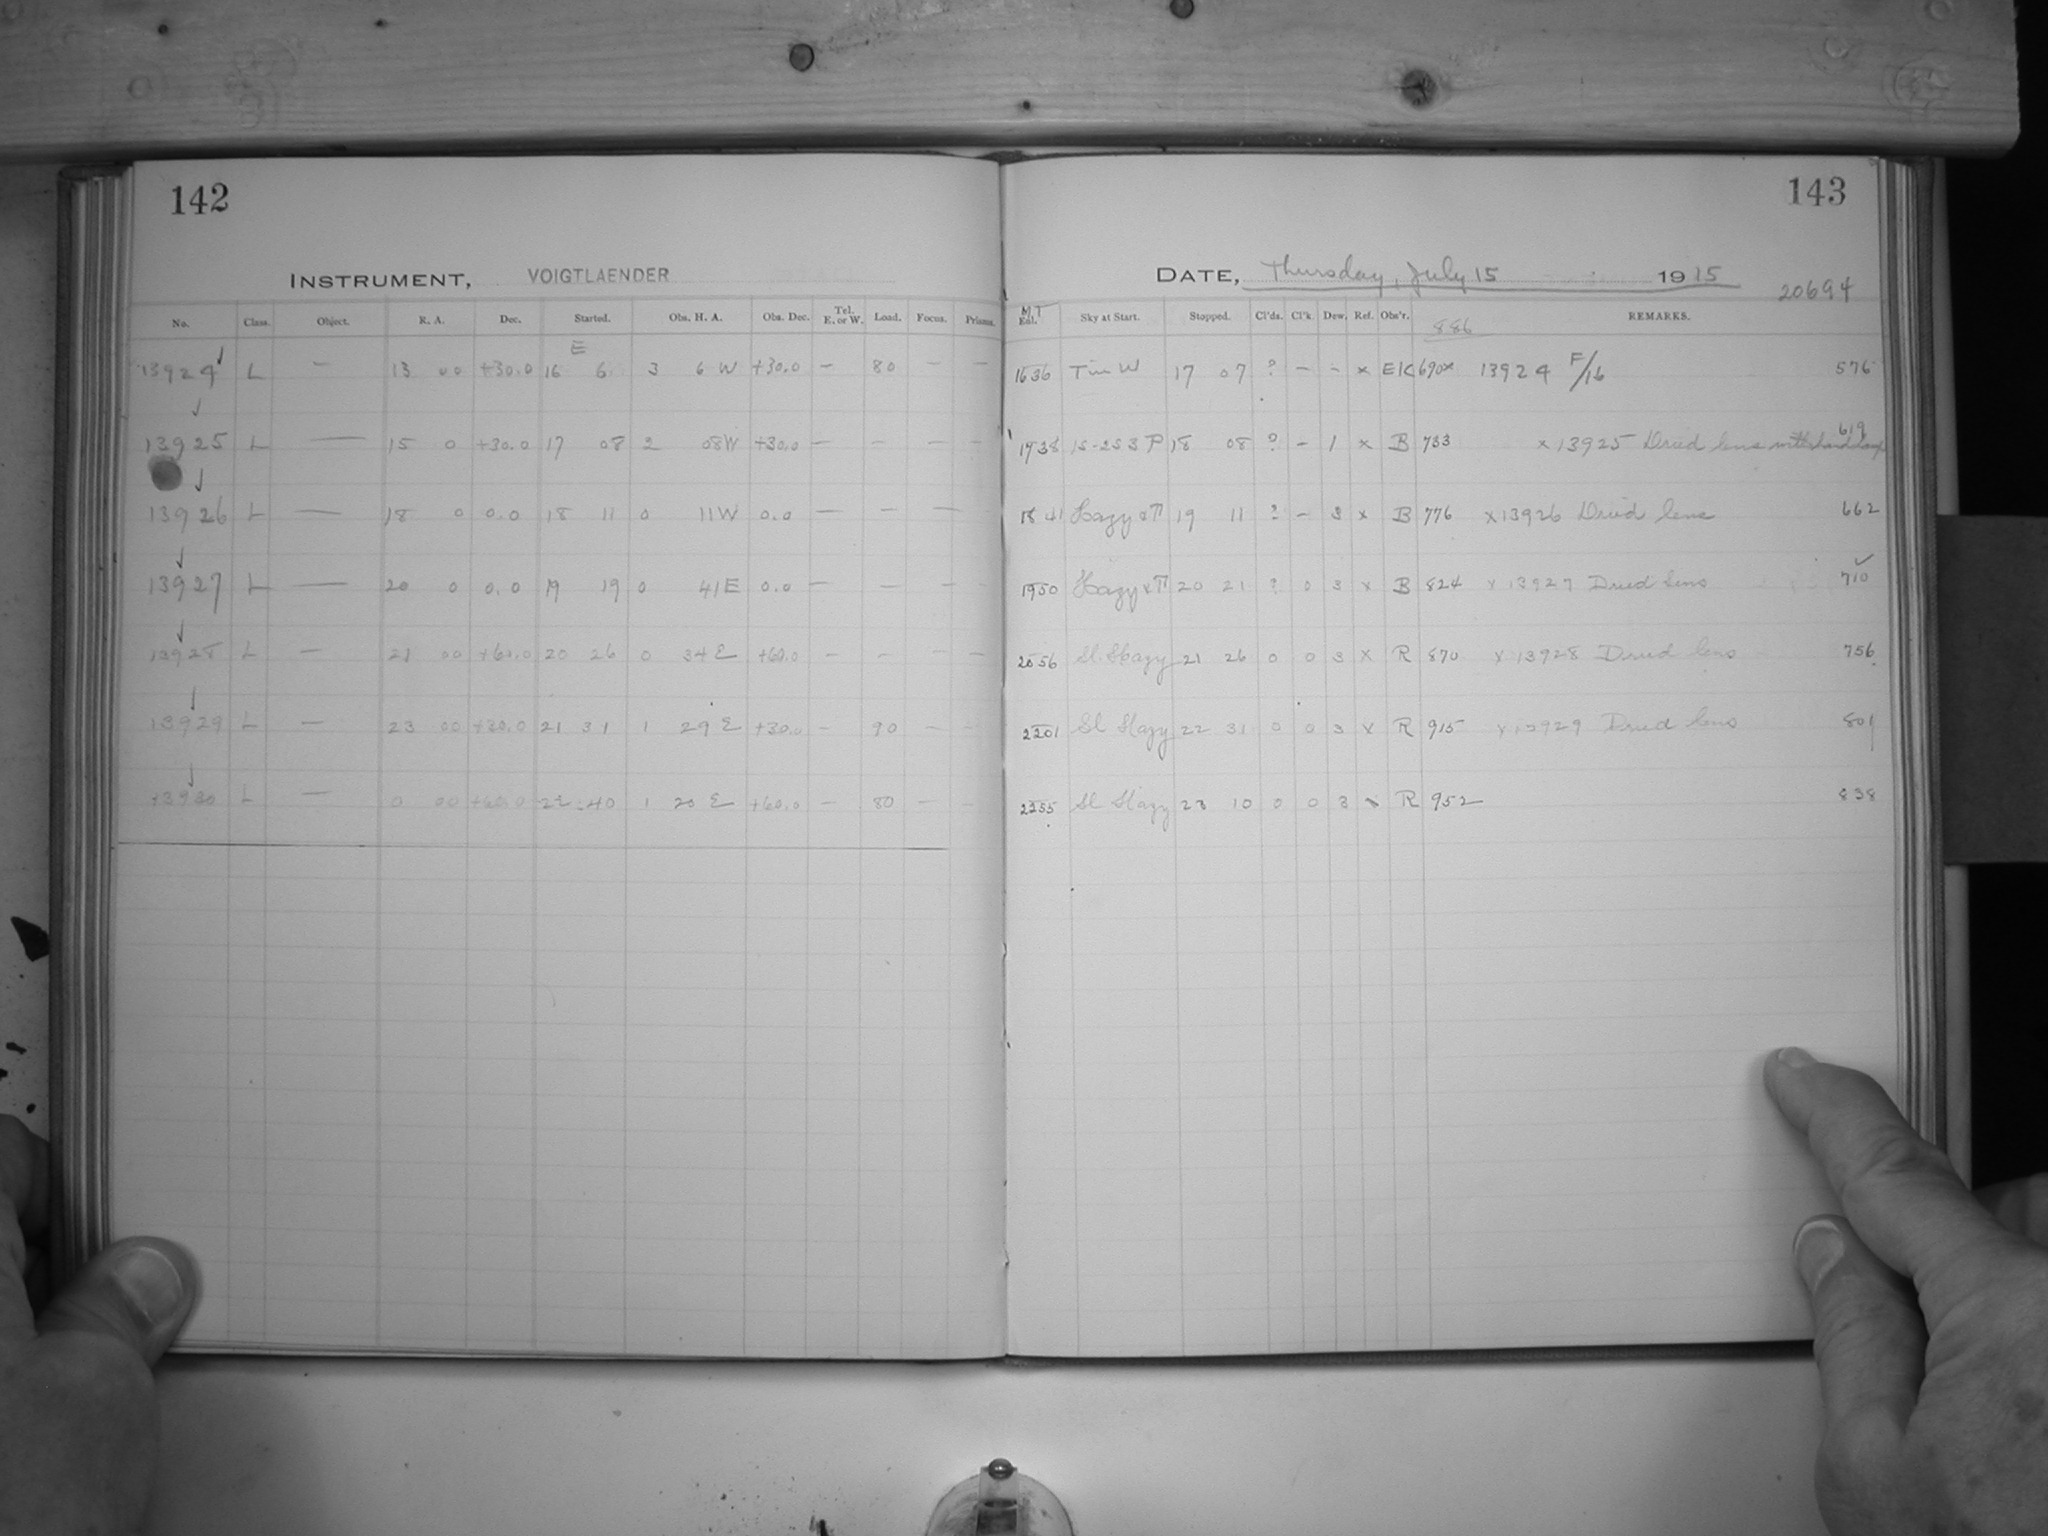 142
INSTRUMENT, VOIGTLAENDER
No. Class. Object. R. A. Dec. Started. Obs. H. A. Obs. Dec. Tel. E. or W. Load. Focus. Prisms.
E
13924 L — 13 00 +30.0 16 6 3 6 W +30.0 — 80 — —
13925 L — 15 0 +30.0 17 08 2 08W +30.0 — — — —
13926 L — 18 0 0.0 18 11 0 11W 0.0 — — —
13927 L — 20 0 0.0 19 19 0 41E 0.0 — — —
13928 L — 21 00 +60.0 20 26 0 34 E +60.0 — — — —
13929 L — 23 00 +30.0 21 31 1 29 E +30.0 — 90 — —
13930 L — 0 00 +60.0 22 40 1 20 E +60.0 — 80 — —
143
DATE, Thursday, July 15 1915
20694
M.T. Sky at Start. Stopped. Cl'ds. Cl'k. Dew. Ref. Obs'r. REMARKS.
886
1636 17 07 ? — — x EK 690x 13924 F/16 576
1738 18 08 ? — 1 x B 733 x 13925 Dried lens 619
1841 Hazy 19 11 ? — 3 x B 776 x13926 Dried lens 662
1950 Hazy 20 21 ? 0 3 x B 824 x 13927 Dried lens 710
2056 Sl. Hazy 21 26 0 0 3 x R 870 x 13928 Dried lens 756
2201 Sl Hazy 22 31 0 0 3 x R 915 x 13929 Dried lens 801
2255 Sl Hazy 23 10 0 0 3 x R 952 838